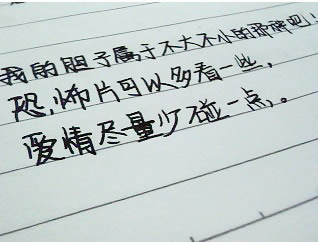 我的胆子属于不大不小的那种吧！
恐怖片可以多看一些，
爱情尽量少碰一点。